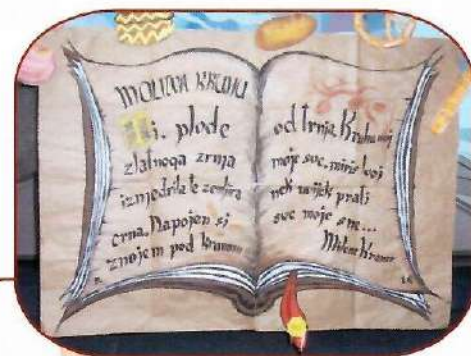 MOLITVA KRUHU
plode
zlatnoga zrnja
iznjedrila te zemljica
crna. Napojen si
znojem pod krunom
od trnja. Kruhu moj
moje sve, miris tvoj
nek uvijek prati
sve moje sne...